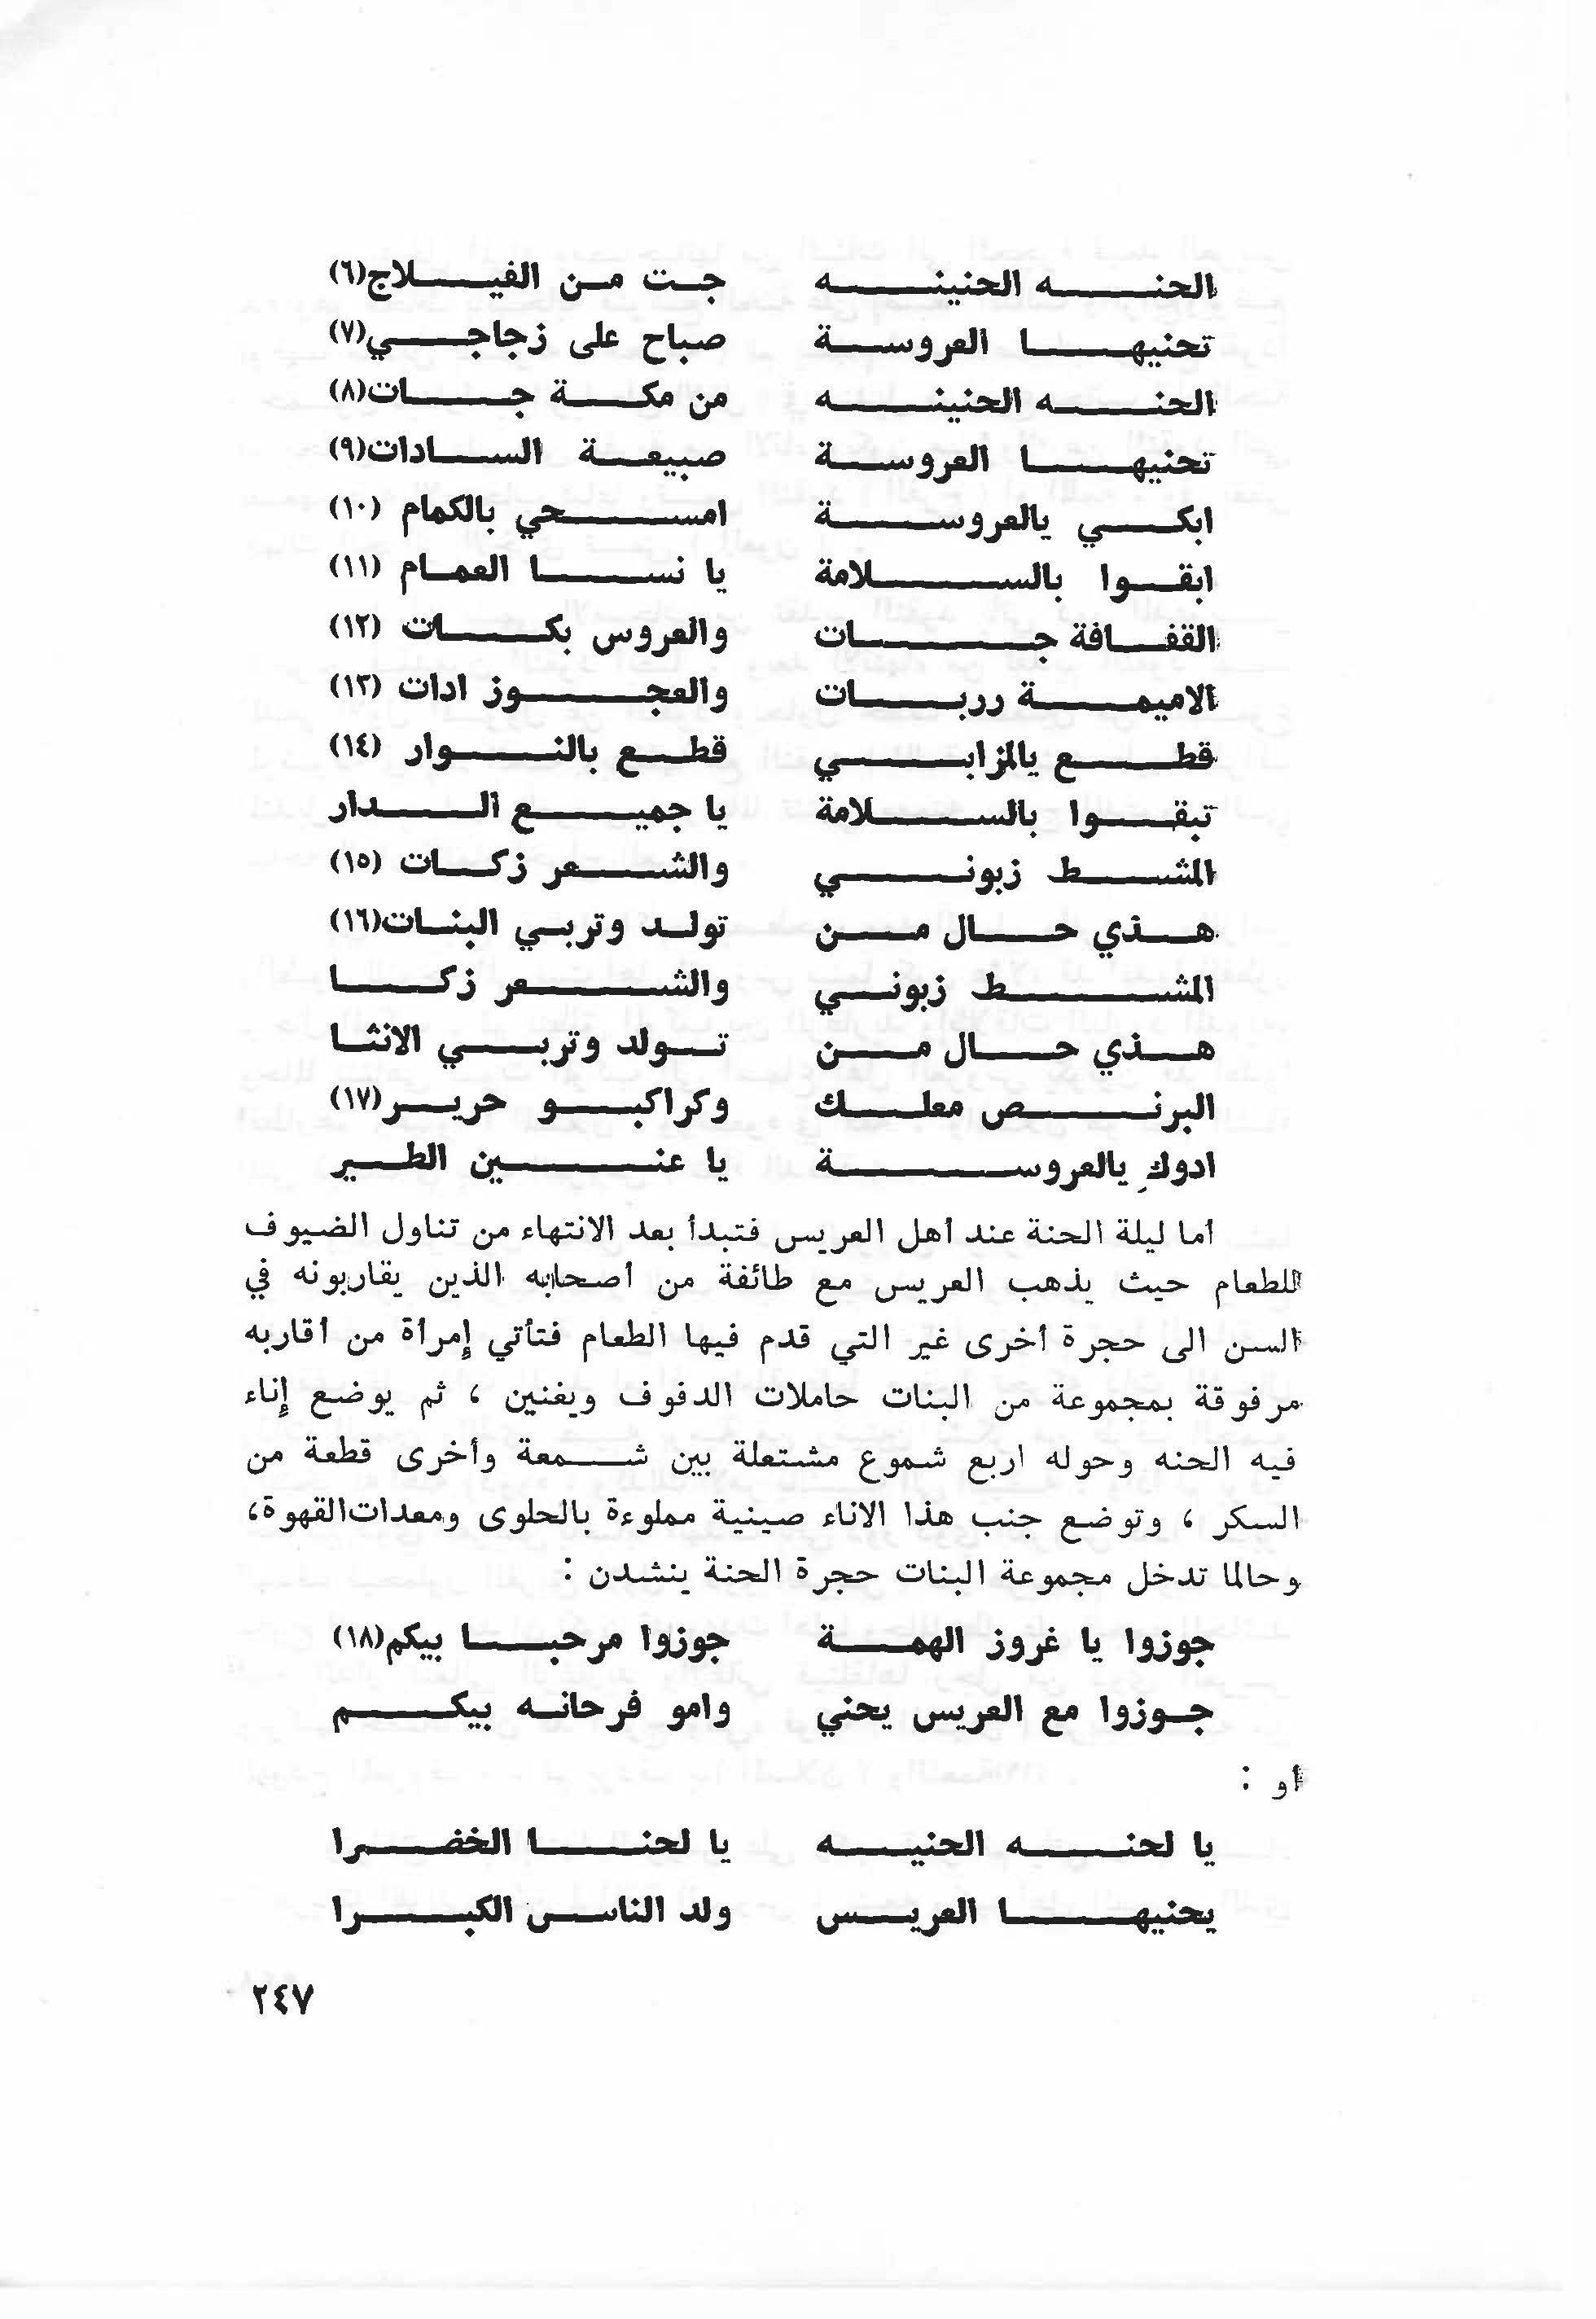 الحنه الحنينه جت من الفيلاج(٦)
تحنيها العروسة صباح على زجاجي(٧)
الحنه الحنينه من مكة جات(٨)
تحنيها العروسة صبيعة السادات(٩)
ابكي يالعروسة امسحي بالكمام (١٠)
ابقوا بالسلامة يا نسا العمام (١١)
القفافة جات والعروس بكات (١٢)
الاميمة رربات والعجوز ادات (١٣)
قطع يالمزابي قطع بالنوار (١٤)
تبقوا بالسلامة يا جميع الدار
المشط زبوني والشعر زكات (١٥)
هذي حال من تولد وتربي البنات(١٦)
المشط زبوني والشعر زكا
هذي حال من تولد وتربي الانثا
البرنص معلك وكراكبو حرير(١٧)
ادوكِ يالعروسة يا عنين الطير
أما ليلة الحنة عند أهل العريس فتبدأ بعد الانتهاء من تناول الضيوف
للطعام حيث يذهب العريس مع طائفة من أصحابه الذين يقاربونه في
السن الى حجرة أخرى غير التي قدم فيها الطعام فتأتي إمرأة من أقاربه
مرفوقة بمجموعة من البنات حاملات الدفوف ويغنين ، ثم يوضع إناء
فيه الحنه وحوله اربع شموع مشتعلة بين شمعة وأخرى قطعة من
السكر ، وتوضع جنب هذا الاناء صينية مملوءة بالحلوى ومعدات القهوة،
وحالما تدخل مجموعة البنات حجرة الحنة ينشدن :
جوزوا يا غروز الهمة جوزوا مرحبا بيكم(١٨)
جوزوا مع العريس يحني وامو فرحانه بيكم
أو :
يا لحنه الحنيه يا لحنا الخضرا
يحنيها العريس ولد الناس الكبرا
٢٤٧